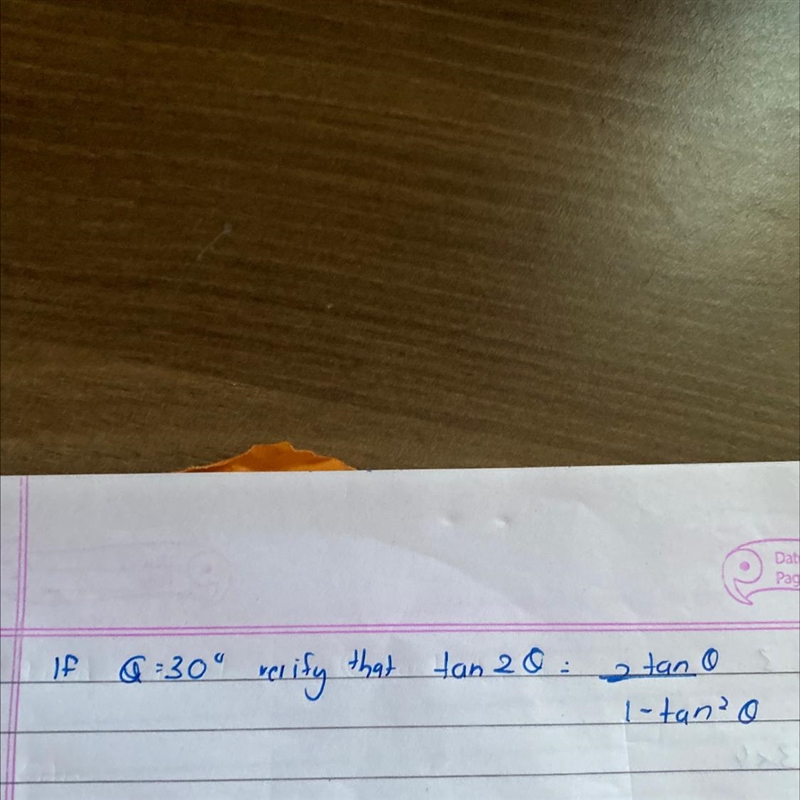 Dat
Pag
If θ = 30° verify that tan 2θ = 2 tan θ
1 - tan² θ